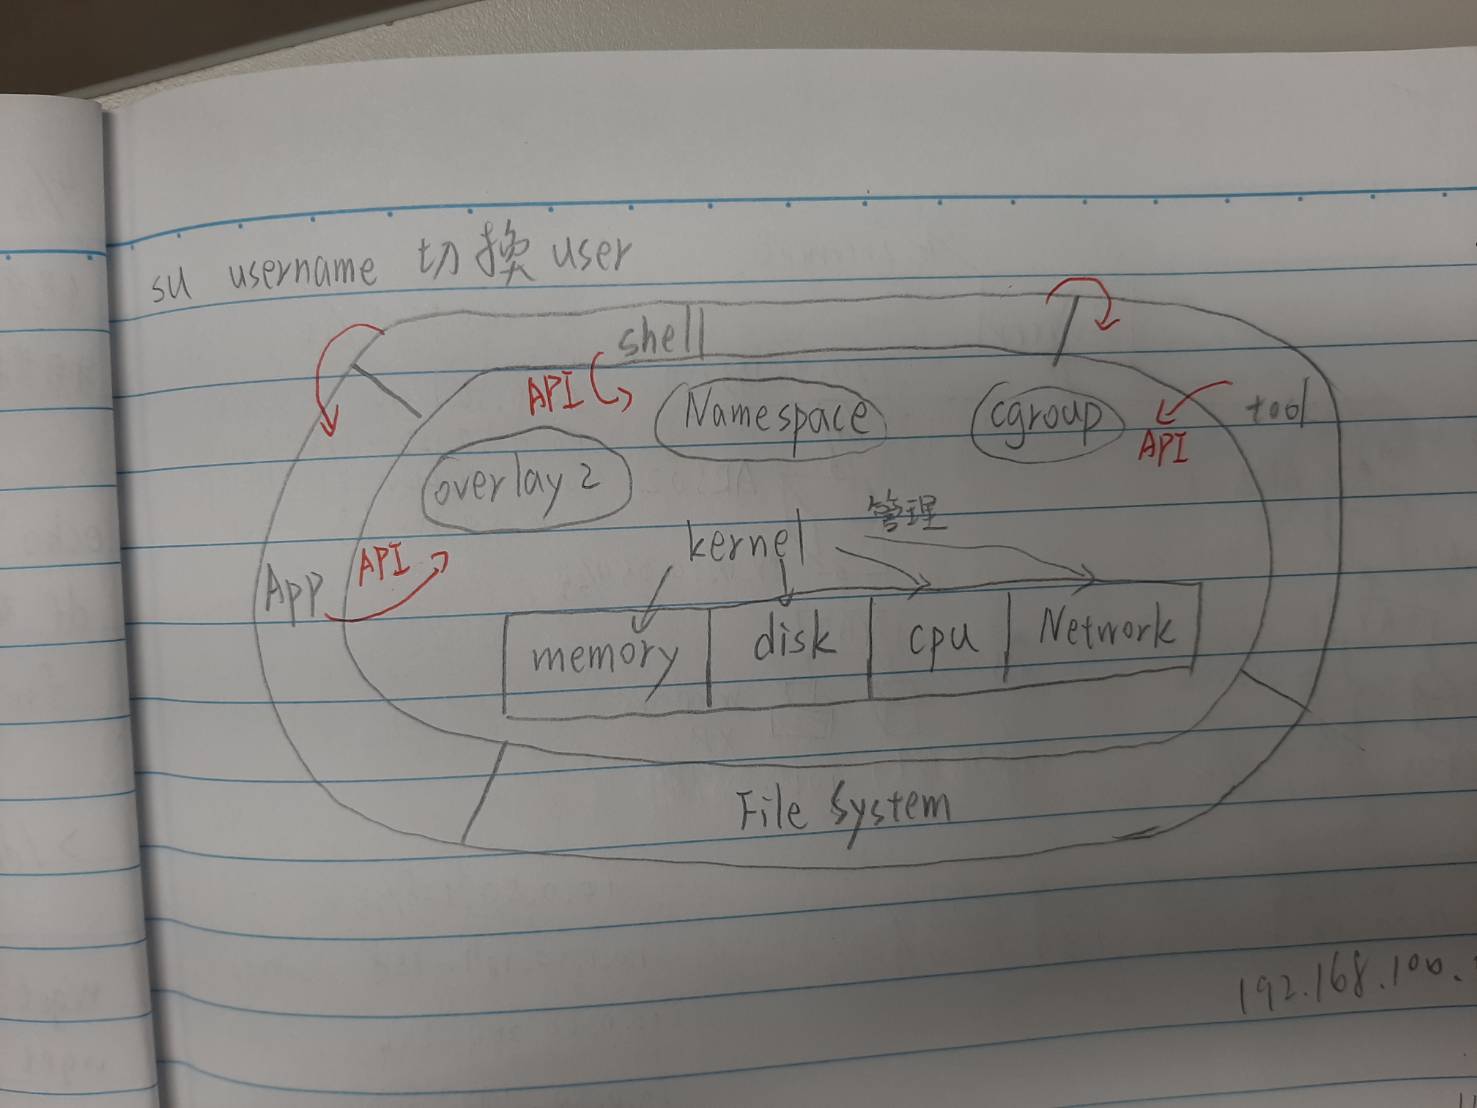 su username 切換user
shell
API
Namespace
cgroup
tool
API
overlay2
kernel
管理
API
App
memory
disk
cpu
Network
File System
192.168.100.